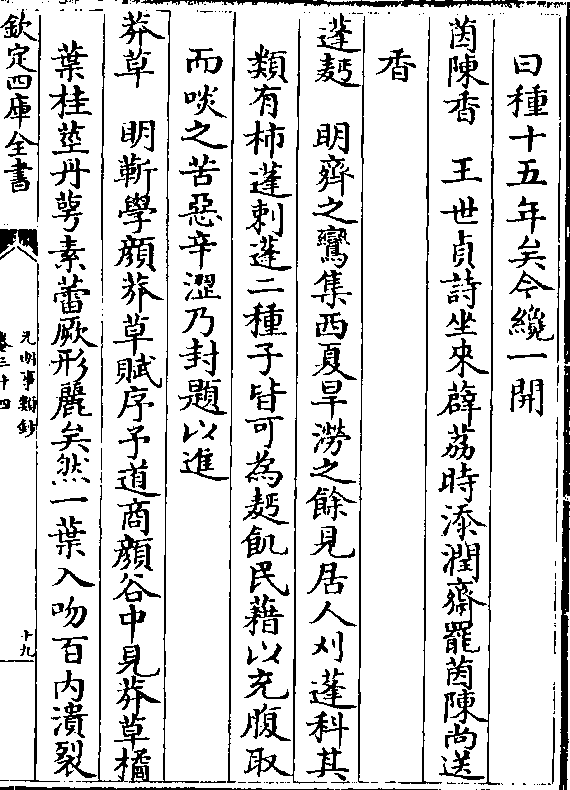 曰種十五年矣今纔一開
茵陳香　王世貞詩坐來薜荔時添潤齋罷茵陳尚送
香
蓬麪　明齊之鸞集西夏旱澇之餘見居人刈蓬科其
類有柿蓬刺蓬二種子皆可為麪飢民藉以充腹取
而啖之苦惡辛澀乃封題以進
莽草　明靳學顔莽草賦序予道商顔谷中見莽草橘
葉桂莖丹萼素蕾厥形麗矣然一葉入吻百内潰裂
欽定四庫全書
元明事類鈔
卷三十四
十九